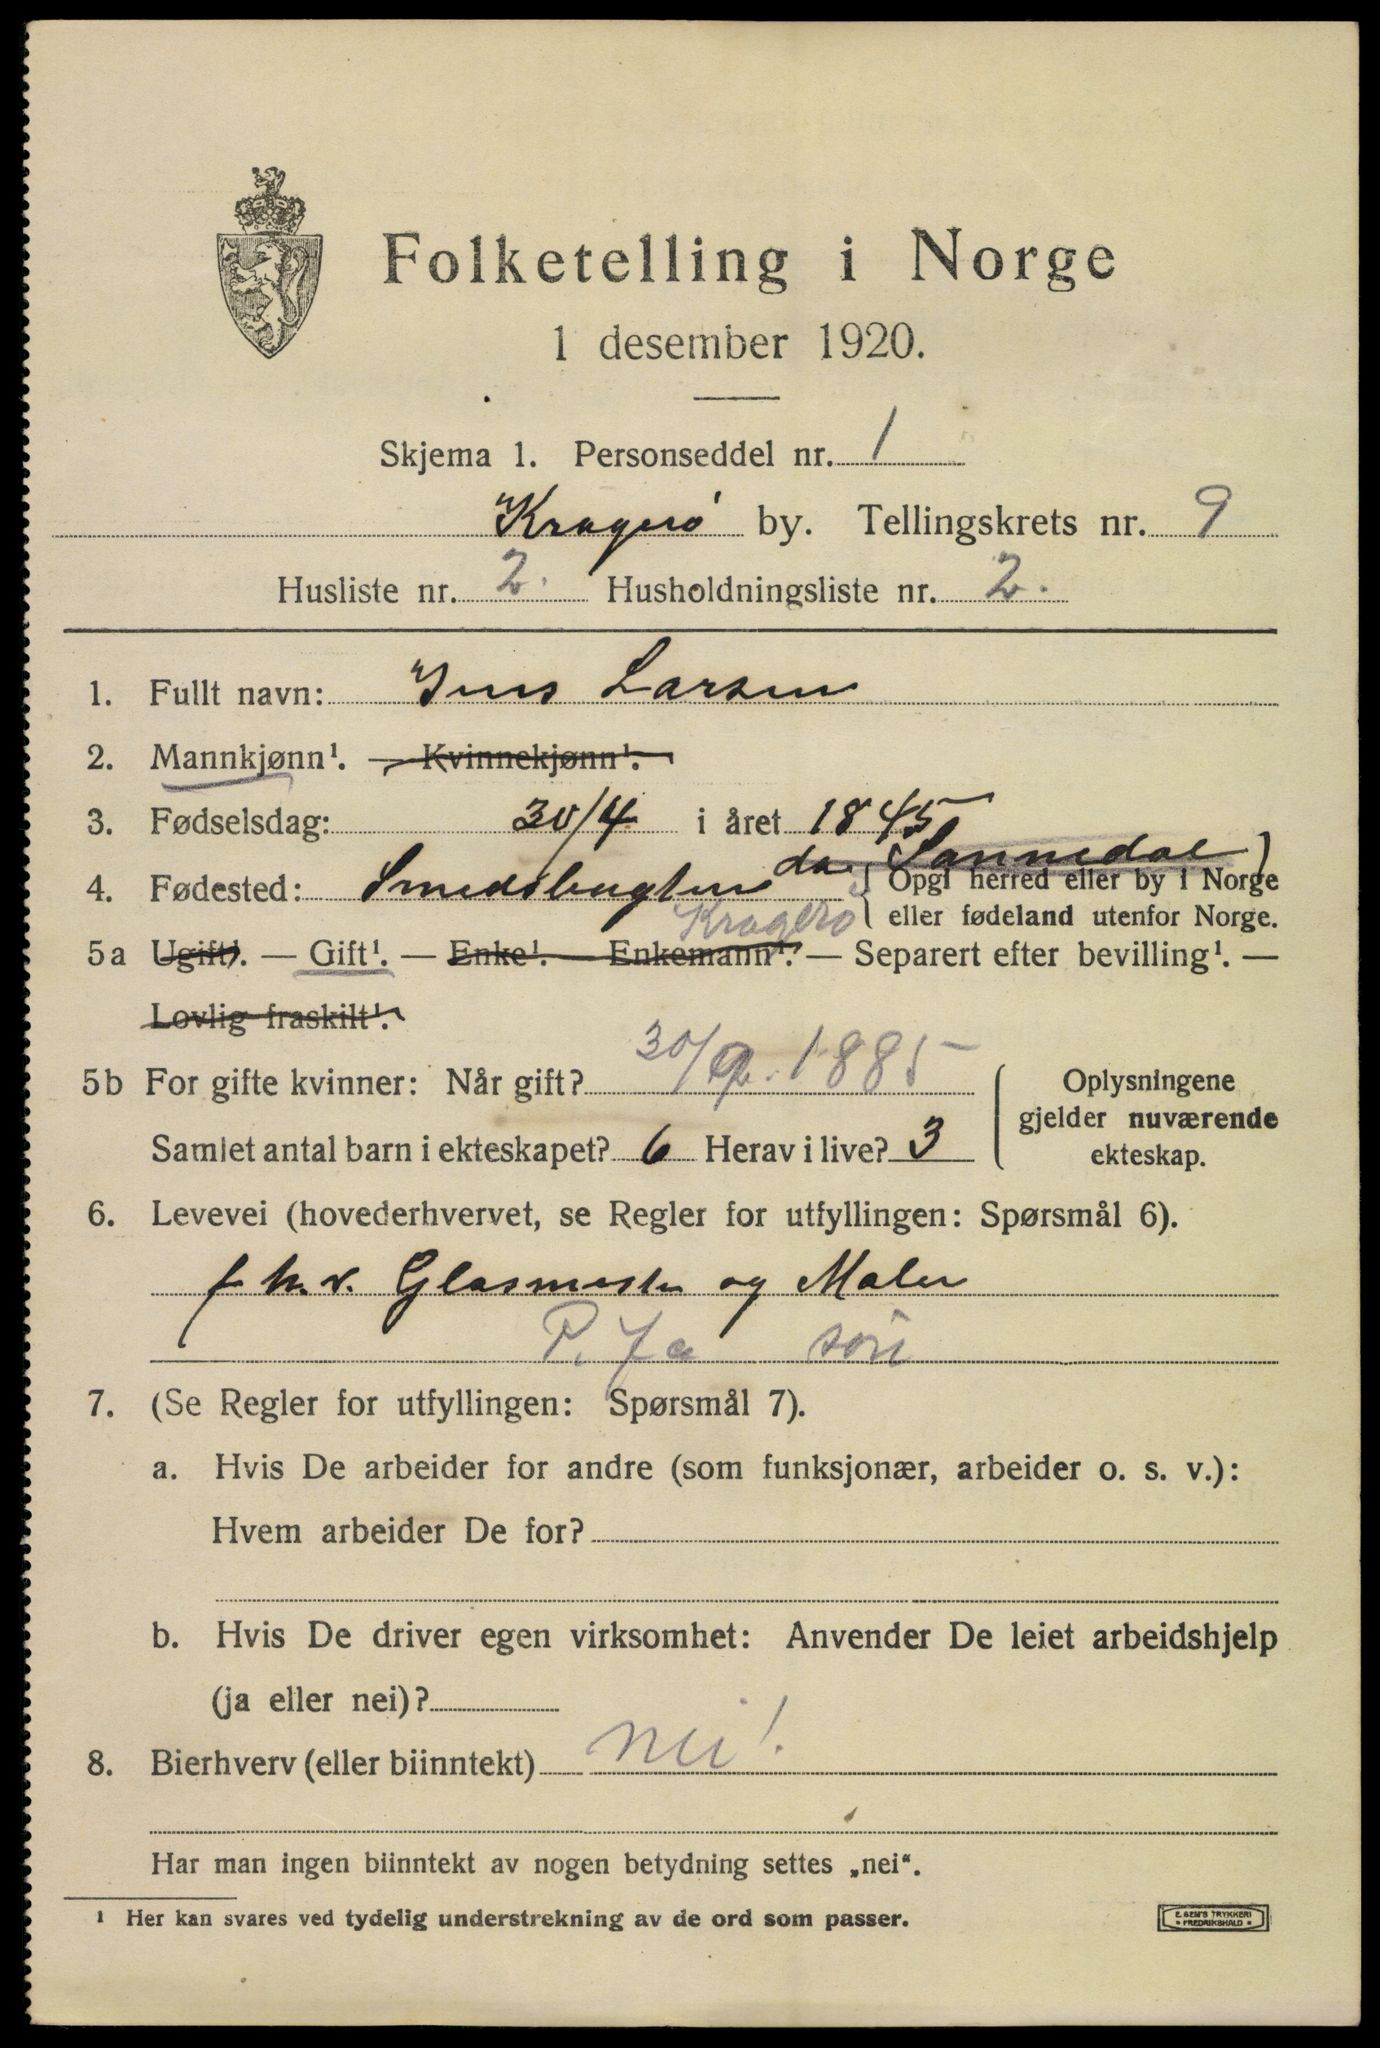 Folketelling i Norge
1 desember 1920.
Skjema 1. Personseddel nr. 1
Kragerö by. Tellingskrets nr. 9
Husliste nr. 2. Husholdningsliste nr. 2.
1. Fullt navn: Jens Larsen
2. Mannkjønn¹. — Kvinnekjønn¹.
3. Fødselsdag: 30/4 i året 1845
4. Fødested: Smedsbugten Sannedal
Opgi herred eller by i Norge
Kragerö eller fødeland utenfor Norge.
5a Ugift¹. — Gift¹. — Enke¹. — Enkemann¹. — Separert efter bevilling¹. —
Lovlig fraskilt¹.
5b For gifte kvinner: Når gift? 30/9. 1885
Samlet antal barn i ekteskapet? 6 Herav i live? 3
Oplysningene
gjelder nuværende
ekteskap.
6. Levevei (hovederhvervet, se Regler for utfyllingen: Spørsmål 6).
f h.v. Glasmester og Maler
P. fa
7. (Se Regler for utfyllingen: Spørsmål 7).
a. Hvis De arbeider for andre (som funksjonær, arbeider o. s. v.):
Hvem arbeider De for?
b. Hvis De driver egen virksomhet: Anvender De leiet arbeidshjelp
(ja eller nei)?
8. Bierhverv (eller biinntekt) nei!
Har man ingen biinntekt av nogen betydning settes „nei“.
¹ Her kan svares ved tydelig understrekning av de ord som passer.
E. SEM'S TRYKKERI
• FREDRIKSHALD •